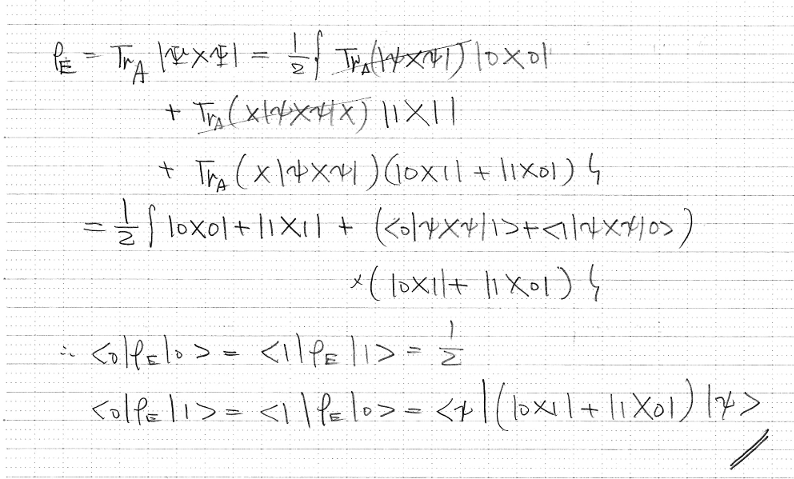 ρ_E = Tr_A |Ψ><Ψ| = 1/2 { Tr_A(|ψ><ψ|) |0><0|
+ Tr_A(X|ψ><ψ|X) |1><1|
+ Tr_A(X|ψ><ψ|)(|0><1| + |1><0|) }
= 1/2 { |0><0| + |1><1| + (<0|ψ><ψ|1> + <1|ψ><ψ|0>)
×(|0><1| + |1><0|) }
∴ <0|ρ_E|0> = <1|ρ_E|1> = 1/2
<0|ρ_E|1> = <1|ρ_E|0> = <ψ|(|0><1| + |1><0|)|ψ>